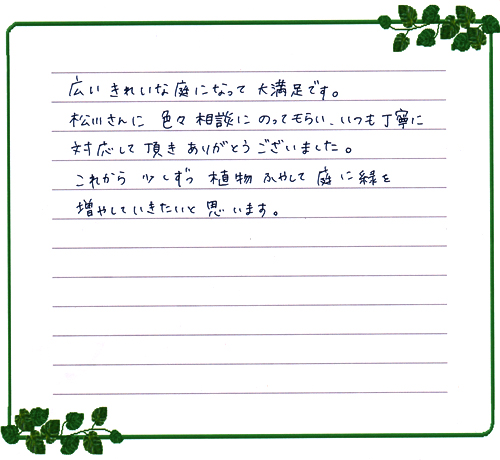 広い きれいな庭になって 大満足です。
松川さんに 色々 相談に のってもらい、いつも丁寧に
対応して 頂き ありがとうございました。
これから 少しずつ 植物 ふやして 庭に緑を
増やしていきたいと 思います。